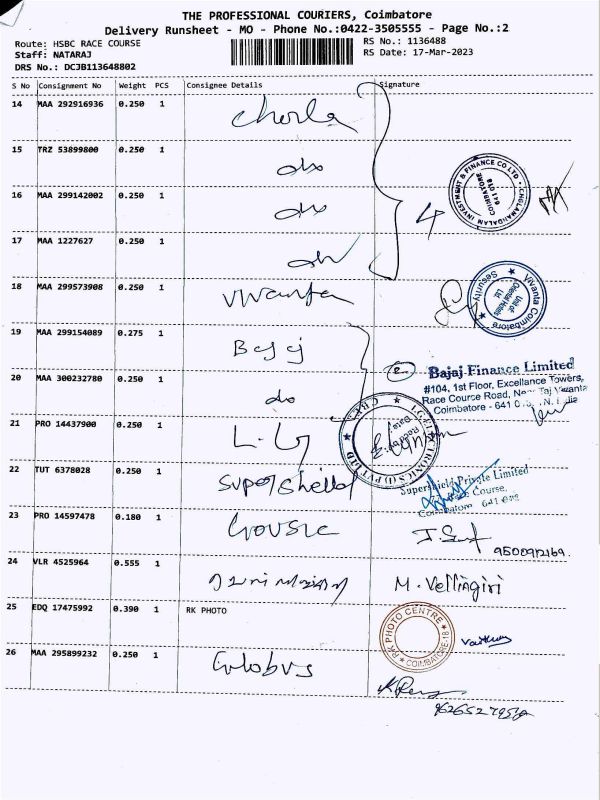 THE PROFESSIONAL COURIERS, Coimbatore
Delivery Runsheet - MO - Phone No.:0422-3505555 - Page No.:2
Route: HSBC RACE COURSE
RS No.: 1136488
Staff: NATARAJ
RS Date: 17-Mar-2023
DRS No.: DCJB113648802
S No Consignment No Weight PCS Consignee Details Signature
14 MAA 292916936 0.250 1 Chola
15 TRZ 53899800 0.250 1 do
16 MAA 299142002 0.250 1 do
4
17 MAA 1227627 0.250 1 do
CHOLAMANDALAM INVESTMENT & FINANCE CO LTD
COIMBATORE
641 018
18 MAA 299573908 0.250 1 Vivanta
Vivanta Coimbatore
Unit of
Oriental Hotels
Ltd
Security
19 MAA 299154089 0.275 1 Bajaj
2
Bajaj Finance Limited
#104, 1st Floor, Excellance Towers,
Race Course Road, Near Taj Vivanta
Coimbatore - 641 0
20 MAA 300232780 0.250 1 do
21 PRO 14437900 0.250 1 L.G
22 TUT 6378028 0.250 1 Supershield
Supershield Private Limited
Race Course,
Coimbatore
23 PRO 14597478 0.180 1
24 VLR 4525964 0.555 1
M. Velliagiri
25 EDQ 17475992 0.390 1 RK PHOTO
RK PHOTO CENTRE
COIMBATORE-18
26 MAA 295899232 0.250 1 Globus